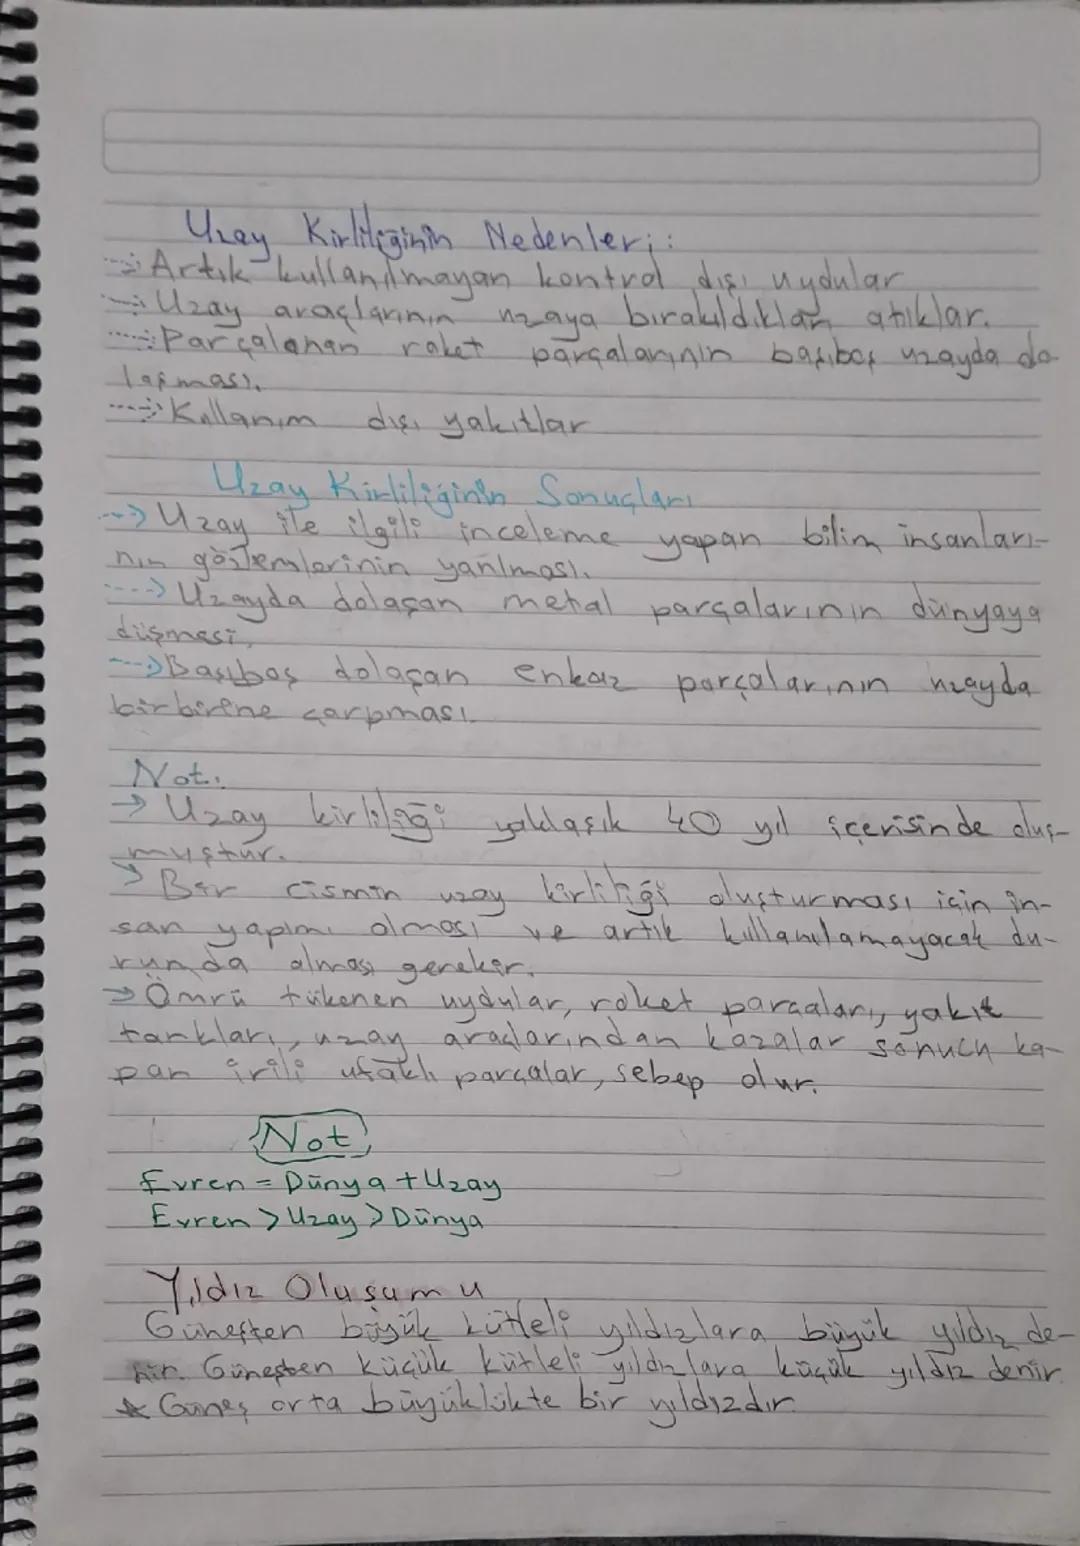 Uzay Kirliliğinin Nedenleri:
---> Artık kullanılmayan kontrol dışı uydular
---> Uzay araçlarının uzaya bıraktıkları atıklar.
---> Parçalanan roket parçalarının başıboş uzayda do-
laşması.
---> Kullanım dışı yakıtlar
Uzay Kirliliğinin Sonuçları
---> Uzay ile ilgili inceleme yapan bilim insanları-
nın gözlemlerinin yanılması.
---> Uzayda dolaşan metal parçalarının dünyaya
düşmesi,
---> Başıboş dolaşan enkaz parçalarının uzayda
birbirine çarpması.
Not:
-> Uzay kirliliği yaklaşık 40 yıl içerisinde oluş-
muştur.
-> Bir cismin uzay kirliliği oluşturması için in-
san yapımı olması ve artık kullanılamayacak du-
rumda olması gerekir.
-> Ömrü tükenen uydular, roket parçaları, yakıt
tankları, uzay araçlarından kazalar sonucu ko-
pan irili ufaklı parçalar, sebep olur.
Not
Evren = Dünya + Uzay
Evren > Uzay > Dünya
Yıldız Oluşumu
Güneşten büyük kütleli yıldızlara büyük yıldız de-
nir. Güneşten küçük kütleli yıldızlara küçük yıldız denir.
★ Güneş orta büyüklükte bir yıldızdır.